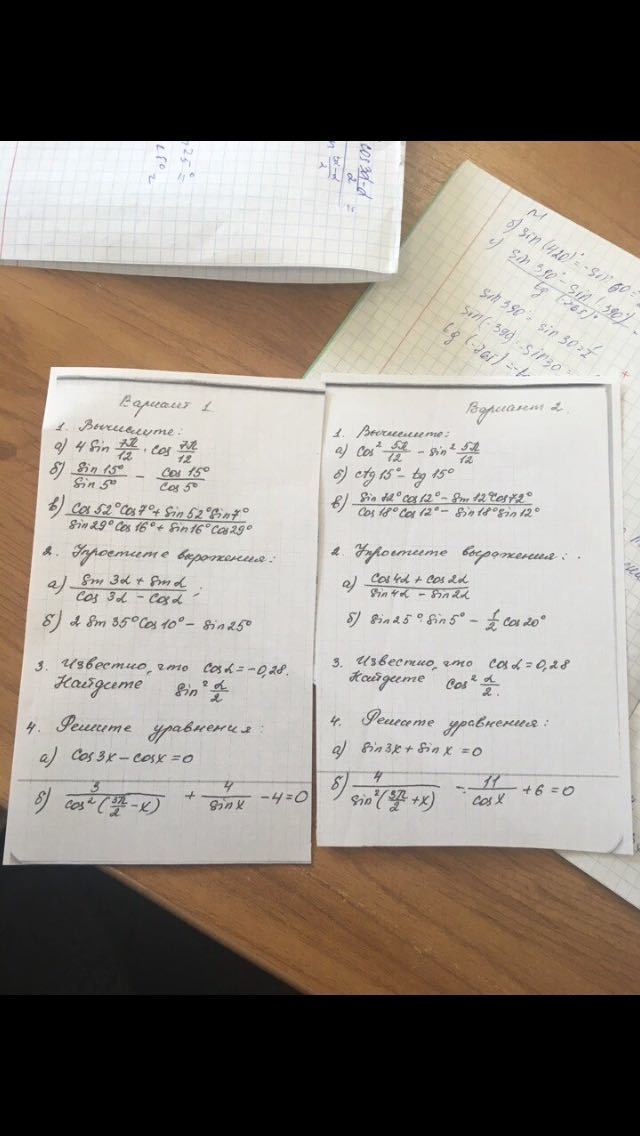 cos 3α - α
2
N1
б) sin (420)° = - sin 60 =
sin 390° - sin (390°)
tg (-265)°
sin 390 = sin 30 = 1/2
sin(-390) - sin 30 =
tg (-265) =
Вариант 1
1. Вычислите:
а) 4 sin 7π/12 · cos 7π/12
б) sin 15°/sin 5° - cos 15°/cos 5°
в) (cos 52° cos 7° + sin 52° sin 7°)/(sin 29° cos 16° + sin 16° cos 29°)
2. Упростите выражения:
а) (sin 3α + sin α)/(cos 3α - cos α);
б) 2 sin 35° cos 10° - sin 25°
3. Известно, что cos α = -0,28.
Найдите sin² α/2
4. Решите уравнения:
а) cos 3x - cos x = 0
б) 3/cos²(3π/2 - x) + 4/sin x - 4 = 0
Вариант 2.
1. Вычислите:
а) cos² 5π/12 - sin² 5π/12
б) ctg 15° - tg 15°
в) (sin 72° cos 12° - sin 12° cos 72°)/(cos 18° cos 12° - sin 18° sin 12°)
2. Упростите выражения:
а) (cos 4α + cos 2α)/(sin 4α - sin 2α)
б) sin 25° · sin 5° - 1/2 cos 20°
3. Известно, что cos α = 0,28
Найдите cos² α/2.
4. Решите уравнения:
а) sin 3x + sin x = 0
б) 4/sin²(3π/2 + x) - 11/cos x + 6 = 0